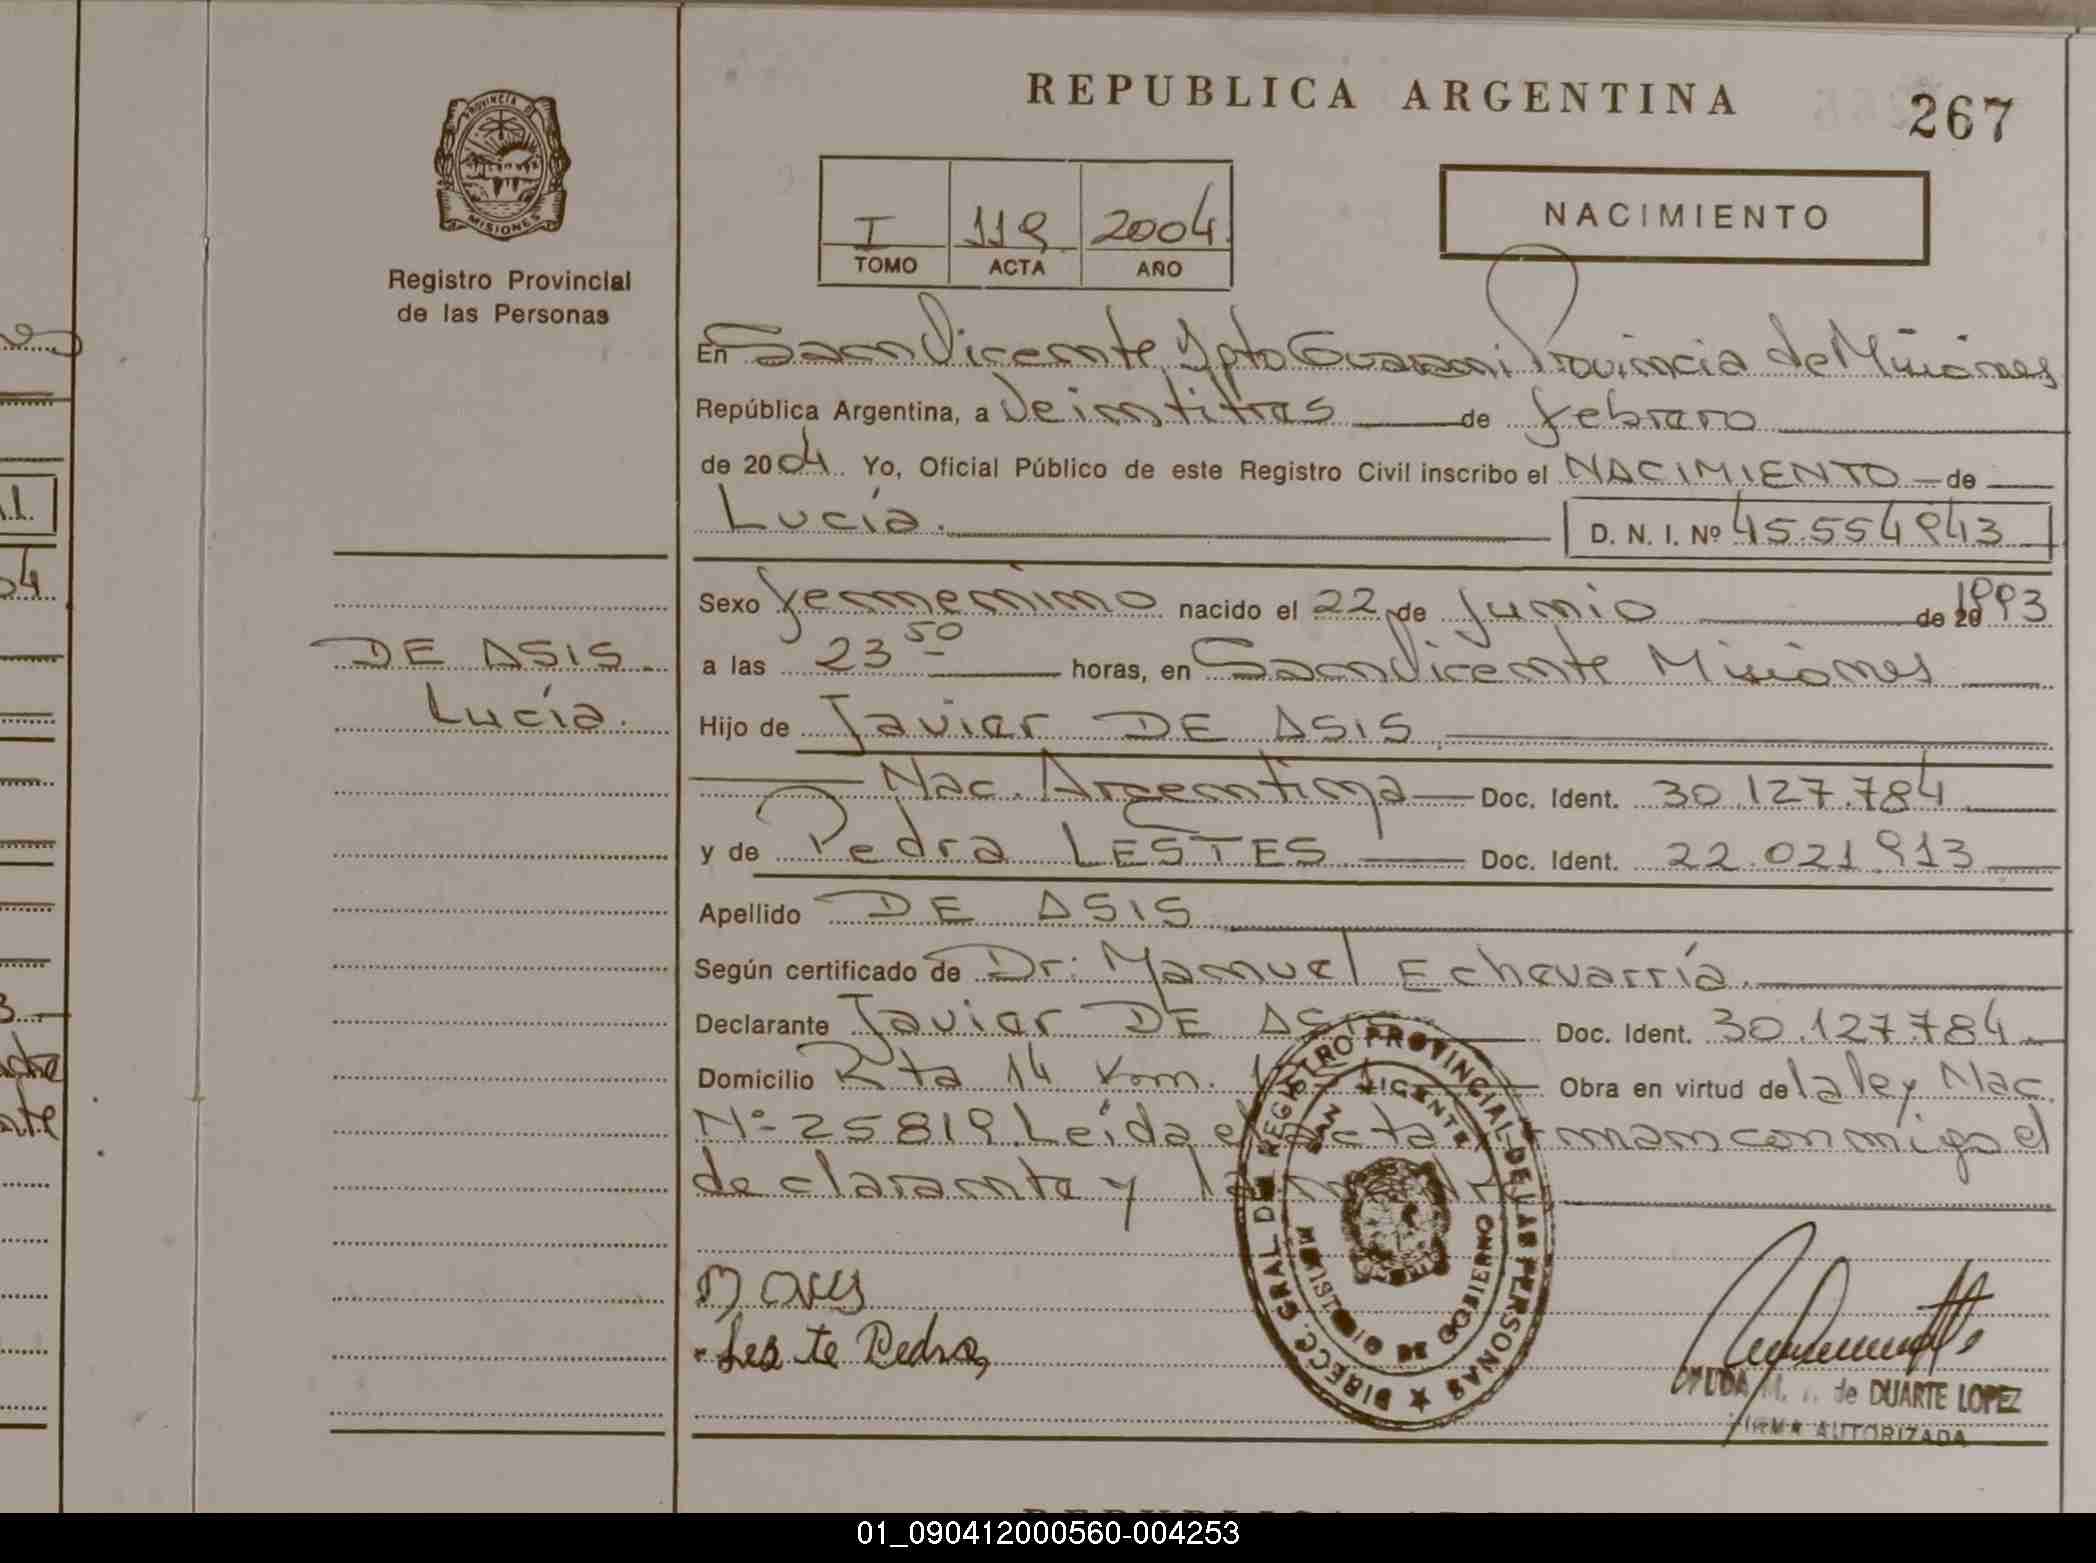 REPUBLICA ARGENTINA
267
PROVINCIA DE
MISIONES
Registro Provincial
de las Personas
I 119 2004
TOMO ACTA AÑO
NACIMIENTO
En San Vicente Dpto Guaraní Provincia de Misiones
República Argentina, a Veintitres de febrero
de 2004 Yo, Oficial Público de este Registro Civil inscribo el NACIMIENTO de
Lucía. D. N. I. Nº 45.554.943
Sexo femenino nacido el 22 de Junio de 20 1993
DE ASIS
Lucía.
a las 23 50 horas, en San Vicente Misiones
Hijo de Javier DE ASIS
Nac. Argentina Doc. Ident. 30.127.784
y de Pedra LESTES Doc. Ident. 22.021.913
Apellido DE ASIS
Según certificado de Dr: Manuel Echevarría.
Declarante Javier DE ASIS Doc. Ident. 30.127.784
Domicilio Rta 14 Km. Obra en virtud de la ley Nac.
Nº 25819. Leída el acta firman conmigo el
declarante y la madre
DIRECC. GRAL DEL REGISTRO PROVINCIAL DE LAS PERSONAS
SAN VICENTE
MINISTERIO DE GOBIERNO
Leste Pedra
de DUARTE LOPEZ
FIRMA AUTORIZADA
01_090412000560-004253